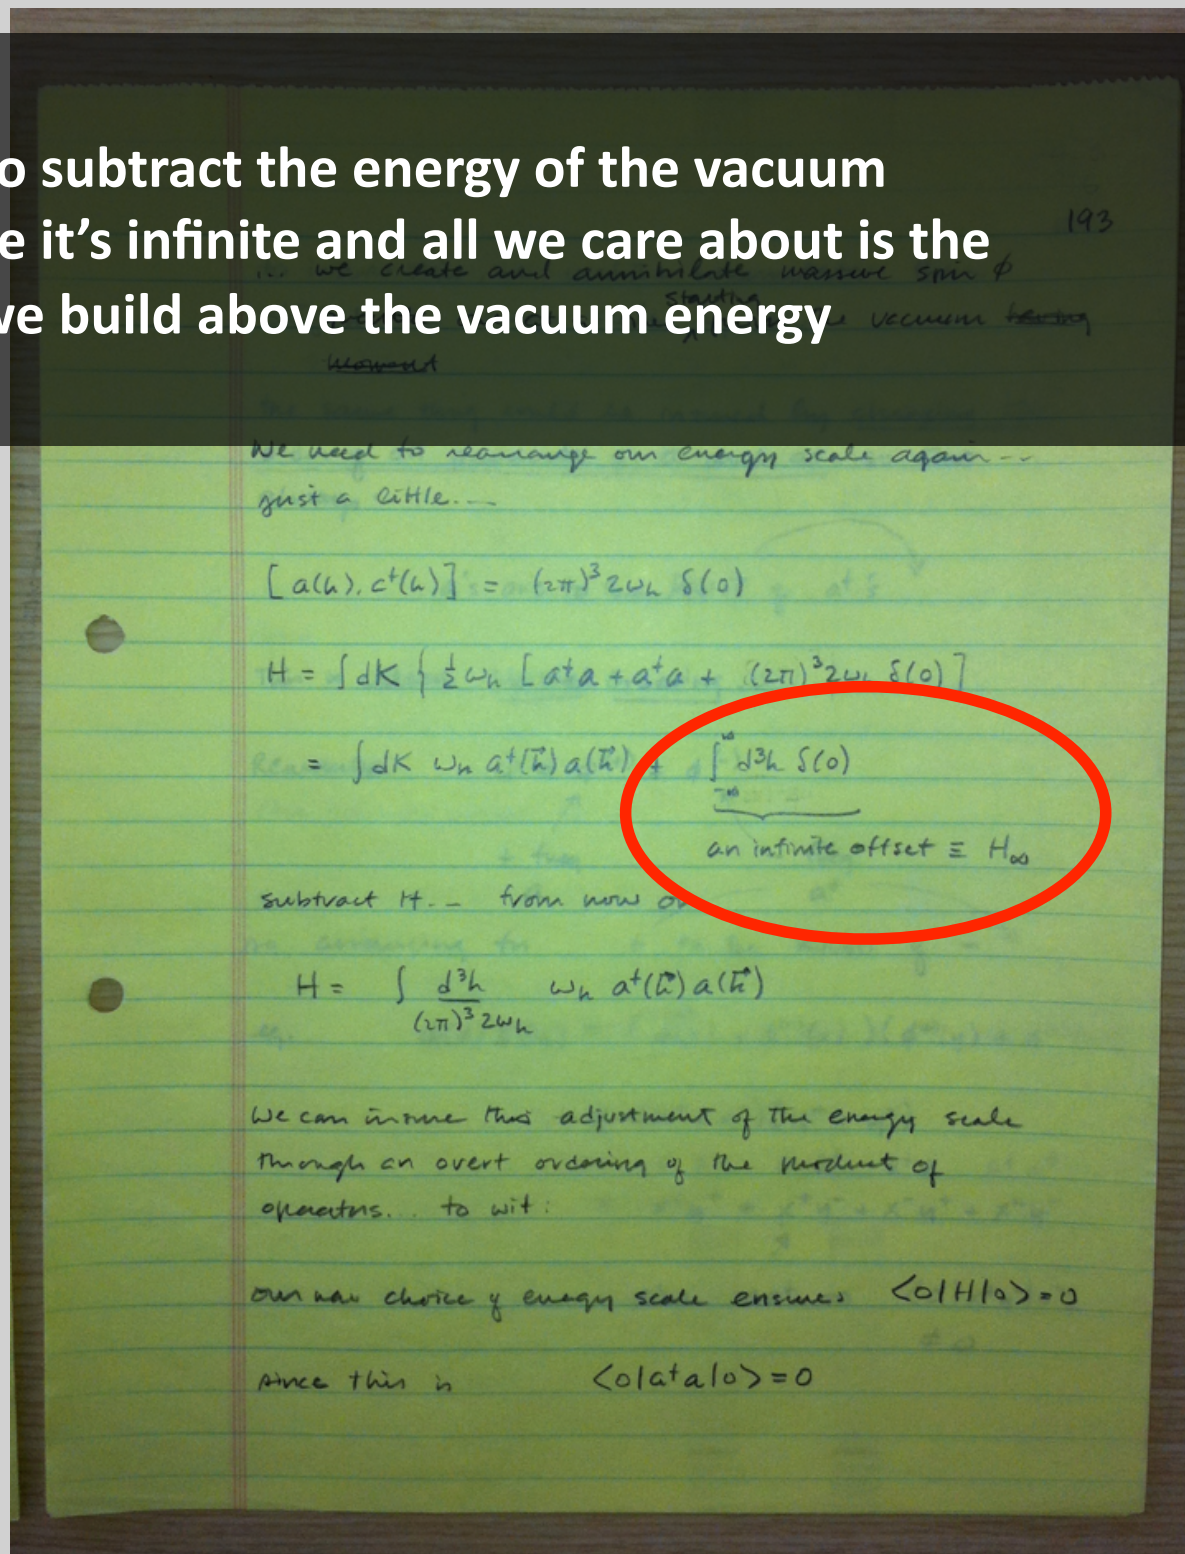 o subtract the energy of the vacuum
193
e it's infinite and all we care about is the
... we create and annihilate massive spin φ
we build above the vacuum energy
starting
the vacuum
We need to rearrange our energy scale again...
just a little...
[a(k), a†(k)] = (2π)³ 2ωₖ δ(0)
H = ∫dK { ½ωₖ [a†a + a†a + (2π)³2ωₖ δ(0)]
= ∫dK ωₖ a†(k⃗) a(k⃗) + ∫ d³k δ(0)
an infinite offset ≡ H∞
subtract it... from now on
H = ∫ d³k / (2π)³ 2ωₖ ωₖ a†(k⃗) a(k⃗)
We can insure this adjustment of the energy scale
through an overt ordering of the product of
operators... to wit:
our new choice of energy scale ensures <0|H|0> = 0
since this is <0|a†a|0> = 0